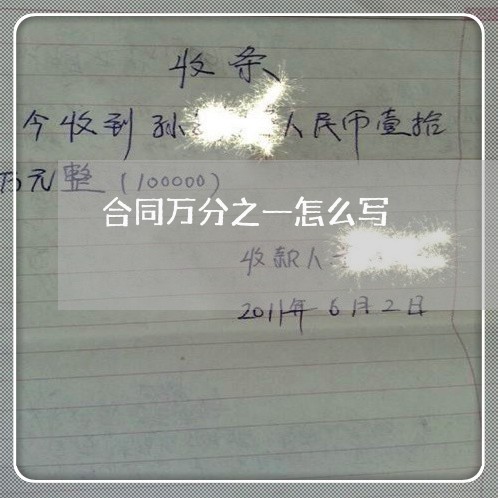 收条
今收到孙 人民币壹拾
万元整（100000）
合同万分之一怎么写
收款人
2011年6月2日